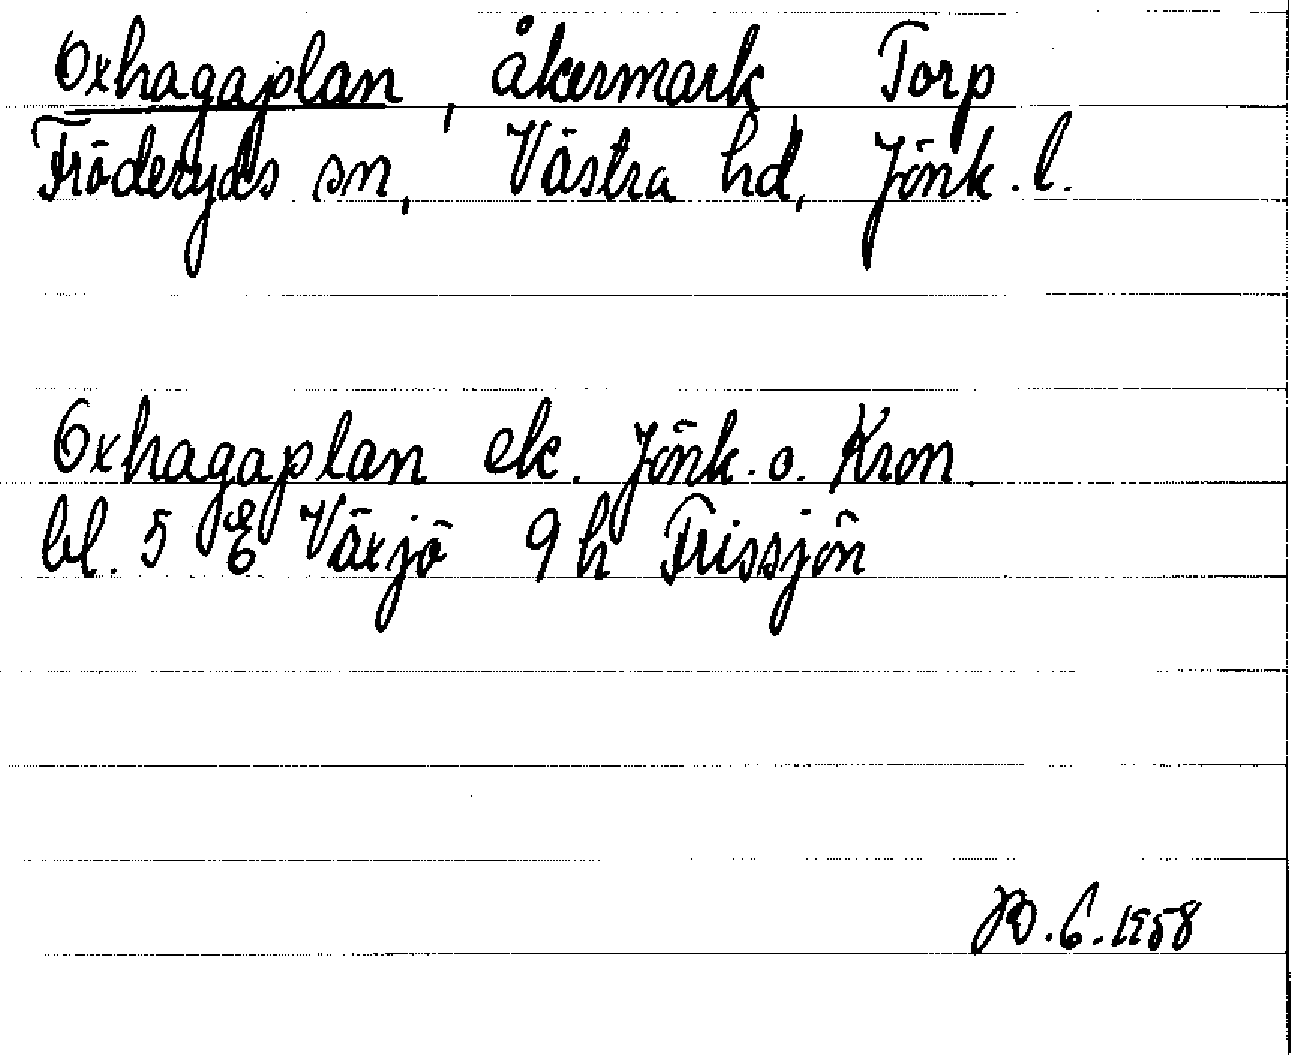 Oxhagaplan, åkermark Torp
Fröderyds sn, Västra hd, Jönk. l.
Oxhagaplan ek. Jönk. o. Kron.
bl. 5 E Växjö 9 h Frissjön
6. 1958